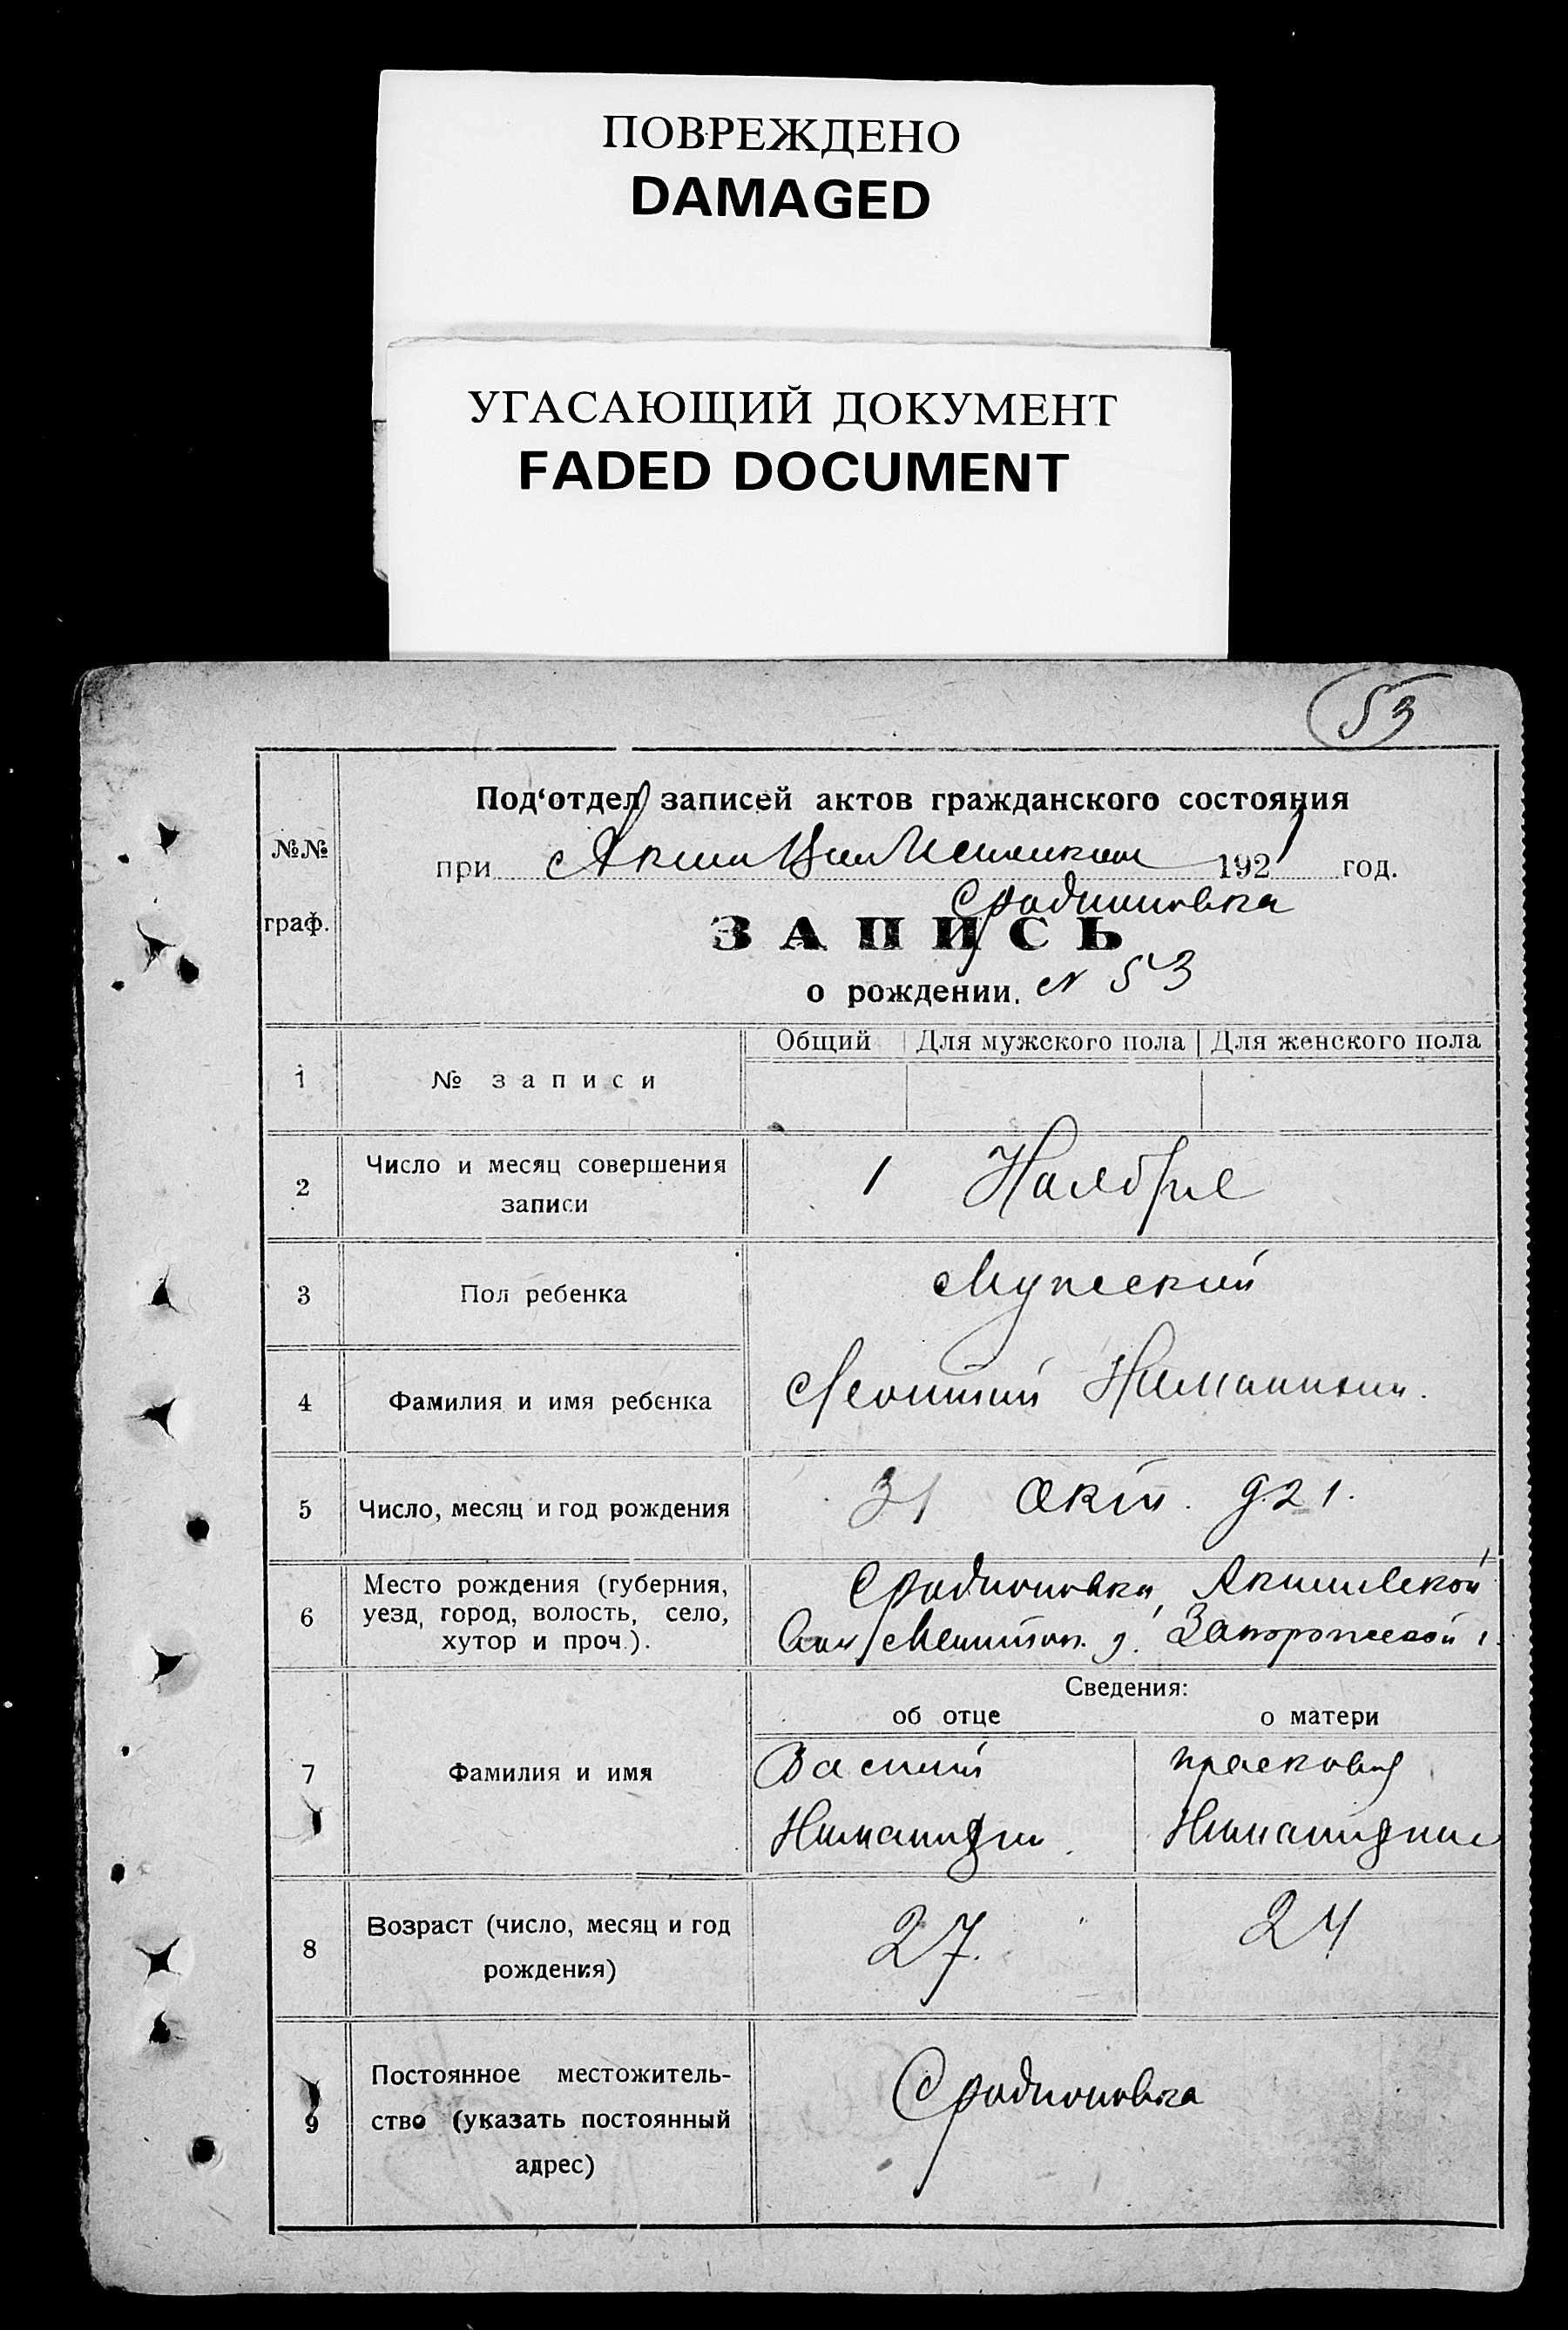 ПОВРЕЖДЕНО
DAMAGED
УГАСАЮЩИЙ ДОКУМЕНТ
FADED DOCUMENT
53
№№
граф.
Под‘отдел записей актов гражданского состояния
при 1921 год.
С Родионовка
ЗАПИСЬ
о рождении. N 53
Общий Для мужского пола Для женского пола
1 № записи
2 Число и месяц совершения
записи
1 Ноября
3 Пол ребенка Мужской
4 Фамилия и имя ребенка Леонтий
5 Число, месяц и год рождения 31 Окт. 921.
6 Место рождения (губерния,
уезд, город, волость, село,
хутор и проч.).
С Родионовка, Акимовской
Вол Мелитоп. у. Запорожской г.
Сведения:
об отце о матери
7 Фамилия и имя
Василий Прасковия
8 Возраст (число, месяц и год
рождения)
27. 24
9 Постоянное местожитель-
ство (указать постоянный
адрес)
С Родионовка